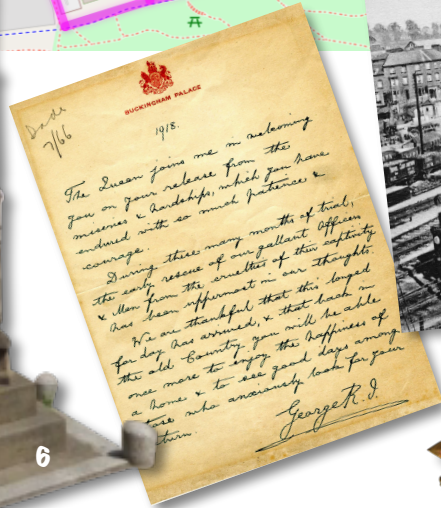 BUCKINGHAM PALACE
Dad
7/66
1918.
The Queen joins me in welcoming
you on your release from the
miseries & hardships, which you have
endured with so much patience &
courage.
During these many months of trial,
the early rescue of our gallant Officers
& Men from the cruelties of their captivity
has been uppermost in our thoughts.
We are thankful that this longed
for day has arrived, & that back in
the old Country you will be able
once more to enjoy the happiness of
a home & to see good days among
those who anxiously look for your
return.
George R. I.
6